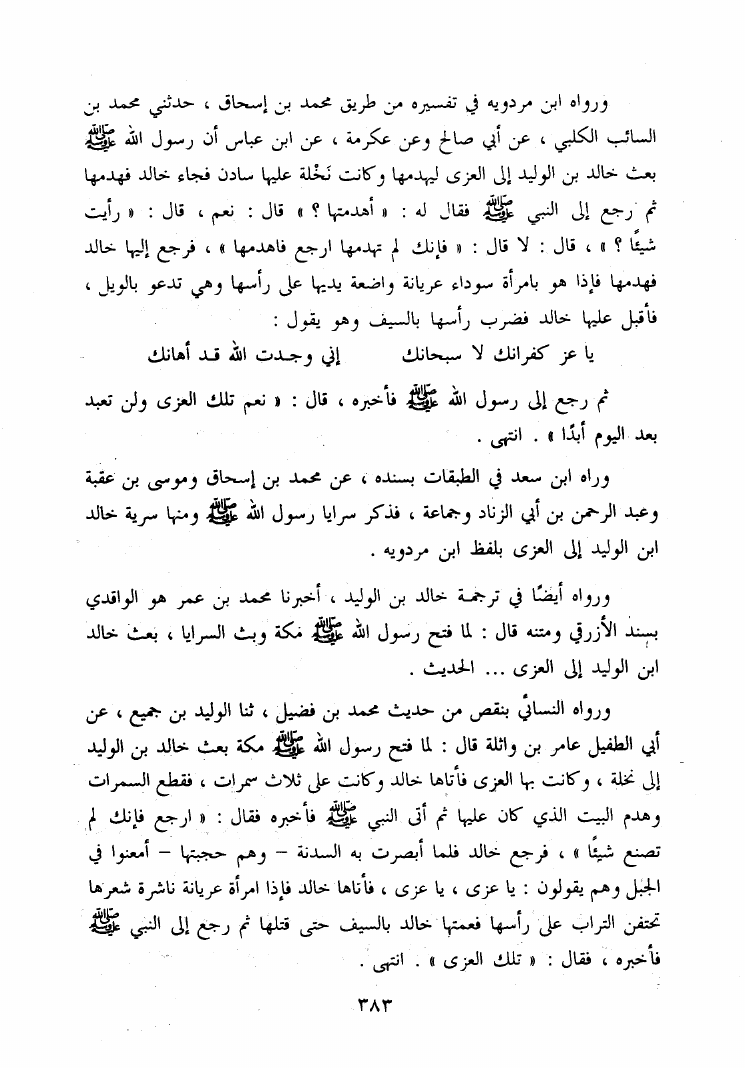 ورواه ابن مردويه في تفسيره من طريق محمد بن إسحاق ، حدثني محمد بن
السائب الكلبي ، عن أبي صالح وعن عكرمة ، عن ابن عباس أن رسول الله ﷺ
بعث خالد بن الوليد إلى العزى ليهدمها وكانت نَخْلة عليها سادن فجاء خالد فهدمها
ثم رجع إلى النبي ﷺ فقال له : « أهدمتها ؟ » قال : نعم ، قال : « رأيت
شيئًا ؟ » ، قال : لا قال : « فإنك لم تهدمها ارجع فاهدمها » ، فرجع إليها خالد
فهدمها فإذا هو بامرأة سوداء عريانة واضعة يديها على رأسها وهي تدعو بالويل ،
فأقبل عليها خالد فضرب رأسها بالسيف وهو يقول :
يا عز كفرانك لا سبحانك إني وجدت الله قد أهانك
ثم رجع إلى رسول الله ﷺ فأخبره ، قال : « نعم تلك العزى ولن تعبد
بعد اليوم أبدًا » . انتهى .
وراه ابن سعد في الطبقات بسنده ، عن محمد بن إسحاق وموسى بن عقبة
وعبد الرحمن بن أبي الزناد وجماعة ، فذكر سرايا رسول الله ﷺ ومنها سرية خالد
ابن الوليد إلى العزى بلفظ ابن مردويه .
ورواه أيضًا في ترجمة خالد بن الوليد ، أخبرنا محمد بن عمر هو الواقدي
بسند الأزرقي ومتنه قال : لما فتح رسول الله ﷺ مكة وبث السرايا ، بعث خالد
ابن الوليد إلى العزى ... الحديث .
ورواه النسائي بنقص من حديث محمد بن فضيل ، ثنا الوليد بن جميع ، عن
أبي الطفيل عامر بن واثلة قال : لما فتح رسول الله ﷺ مكة بعث خالد بن الوليد
إلى نخلة ، وكانت بها العزى فأتاها خالد وكانت على ثلاث سمرات ، فقطع السمرات
وهدم البيت الذي كان عليها ثم أتى النبي ﷺ فأخبره فقال : « ارجع فإنك لم
تصنع شيئًا » ، فرجع خالد فلما أبصرت به السدنة – وهم حجبتها – أمعنوا في
الجبل وهم يقولون : يا عزى ، يا عزى ، فأتاها خالد فإذا امرأة عريانة ناشرة شعرها
تحتفن التراب على رأسها فعمتها خالد بالسيف حتى قتلها ثم رجع إلى النبي ﷺ
فأخبره ، فقال : « تلك العزى » . انتهى .
٣٨٣